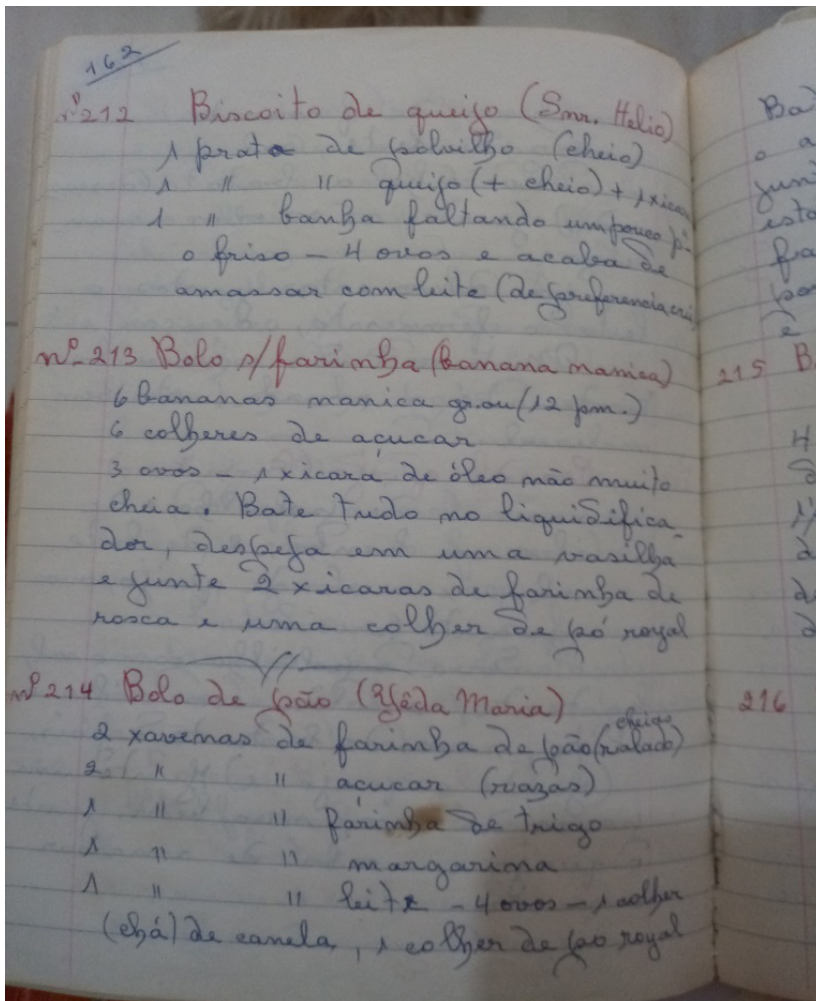 162
nº 212 Biscoito de queijo (Snr. Helio)
1 prato de polvilho (cheio)
1 " " queijo (+ cheio) + 1 xicar
1 " banha faltando um pouco p.
o friso - 4 ovos e acaba de
amassar com leite (de preferencia
nº 213 Bolo s/ farinha (banana nanica)
6 bananas nanica gr. ou (12 pm.)
6 colheres de açucar
3 ovos - 1 xicara de óleo não muito
cheia. Bate tudo no liquidifica-
dor, despeja em uma vasilha
e junte 2 xicaras de farinha de
rosca e uma colher de pó royal
nº 214 Bolo de pão (Yêda Maria)
cheias
2 xavenas de farinha de pão (ralado)
2 " " açucar (razas)
1 " " farinha de trigo
1 " " margarina
1 " " leite - 4 ovos - 1 colher
(chá) de canela, 1 colher de po royal
Ba
o a
jun
isto
fra
po
e
215 B
4
216